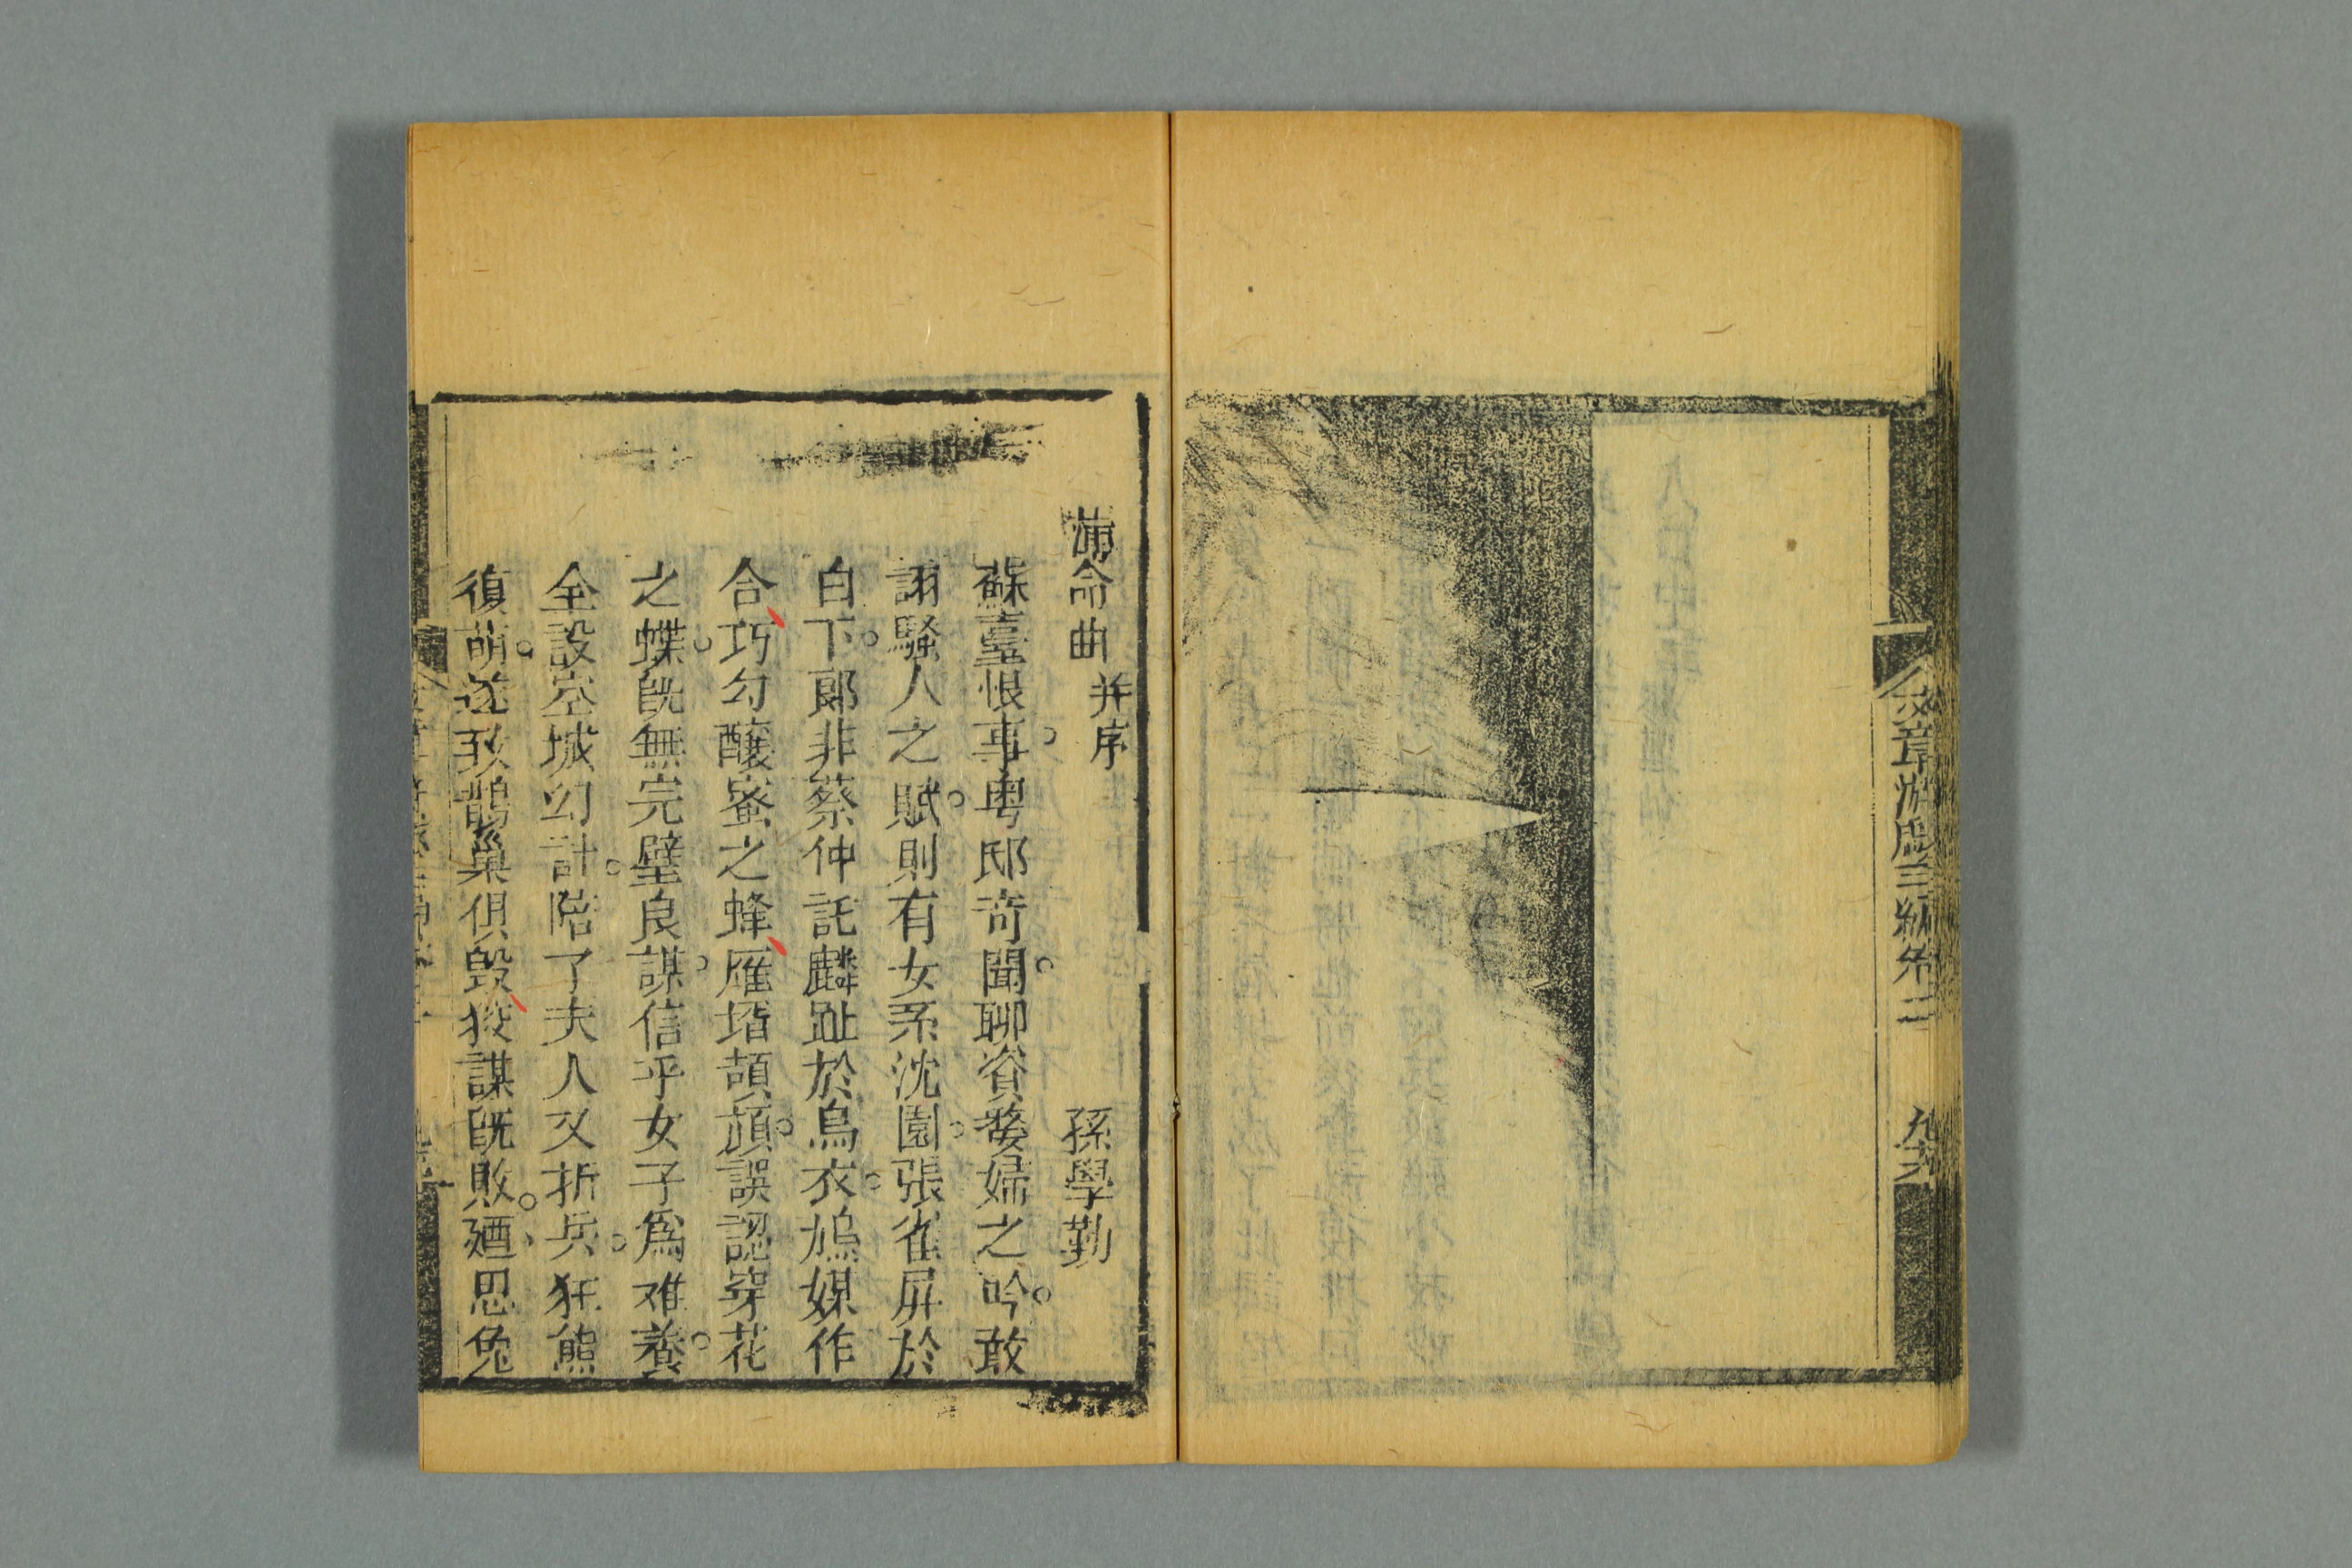 文章游戲三編卷二 九六
薄命曲 并序 孫學勤
蘇臺恨事。粵邸奇聞。聊資嫠婦之吟。敢
詡騷人之賦。則有女系沈園。張雀屏於
白下。郎非蔡仲託麟趾於烏衣。鴆媒作
合巧勾釀蜜之蜂雁壻頡頏。誤認穿花
之蝶。旣無完璧良謀。信乎女子爲难養。
全設空城幻計。陪了夫人又折兵。狂熊
復萌。遂致鵲巢俱毁狡謀旣敗。廼思兔